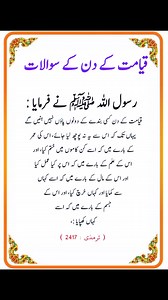 قیامت کے دن کے سوالات
رسول اللہ ﷺ نے فرمایا :
قیامت کے دن کسی بندے کے دونوں پاؤں نہیں ہٹیں گے
یہاں تک کہ اس سے یہ نہ پوچھ لیا جائے: اس کی عمر
کے بارے میں کہ اسے کن کاموں میں ختم کیا، اور اس
کے علم کے بارے میں کہ اس پر کیا عمل کیا
اور اس کے مال کے بارے میں کہ اسے کہاں
سے کمایا اور کہاں خرچ کیا، اور اس کے
جسم کے بارے میں کہ اسے
کہاں کھپایا :
( ترمذی : 2417 )